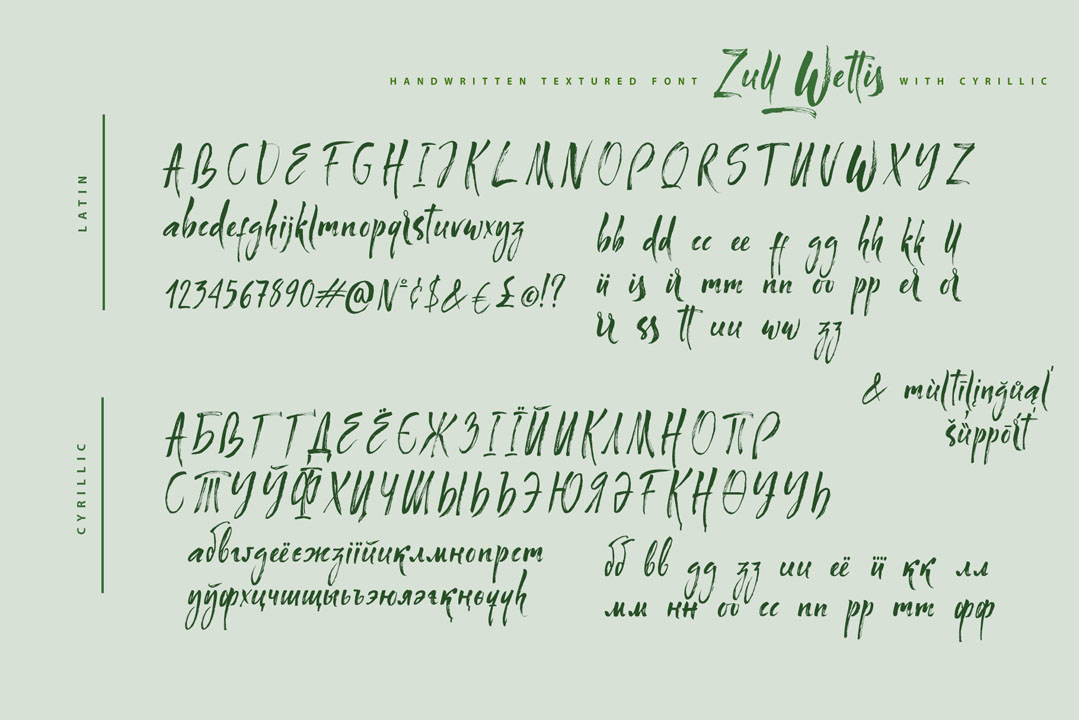 HANDWRITTEN TEXTURED FONT Zull Wettis WITH CYRILLIC
LATIN
ABCDEFGHIJKLMNOPQRSTUVWXYZ
abcdefghijklmnopqrstuvwxyz
1234567890#@№¢$&€£©!?
bb dd cc ee ff gg hh kk ll
ii is ir mm nn oo pp er or
rr ss tt uu ww zz
& mùltīlįnğůąĺ
šűppōŕt
CYRILLIC
АБВГҐДЕЁЄЖЗІЇЙИКЛМНОПР
СТУЎФХЦЧШЫЬЪЭЮЯӘҒҚҢӨҰҮҺ
абвгґдеёєжзіїйиқлмнопрст
уўфхцчшщыьъэюяәғқңөұүһ
бб вв дд зз ии её її ққ лл
мм нн оо сс пп рр тт фф